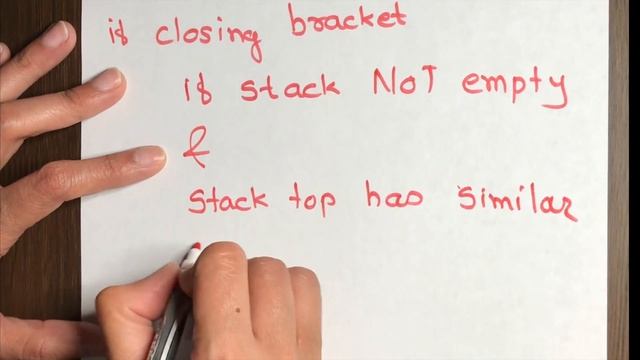 if closing bracket
if stack NOT empty
&
stack top has similar